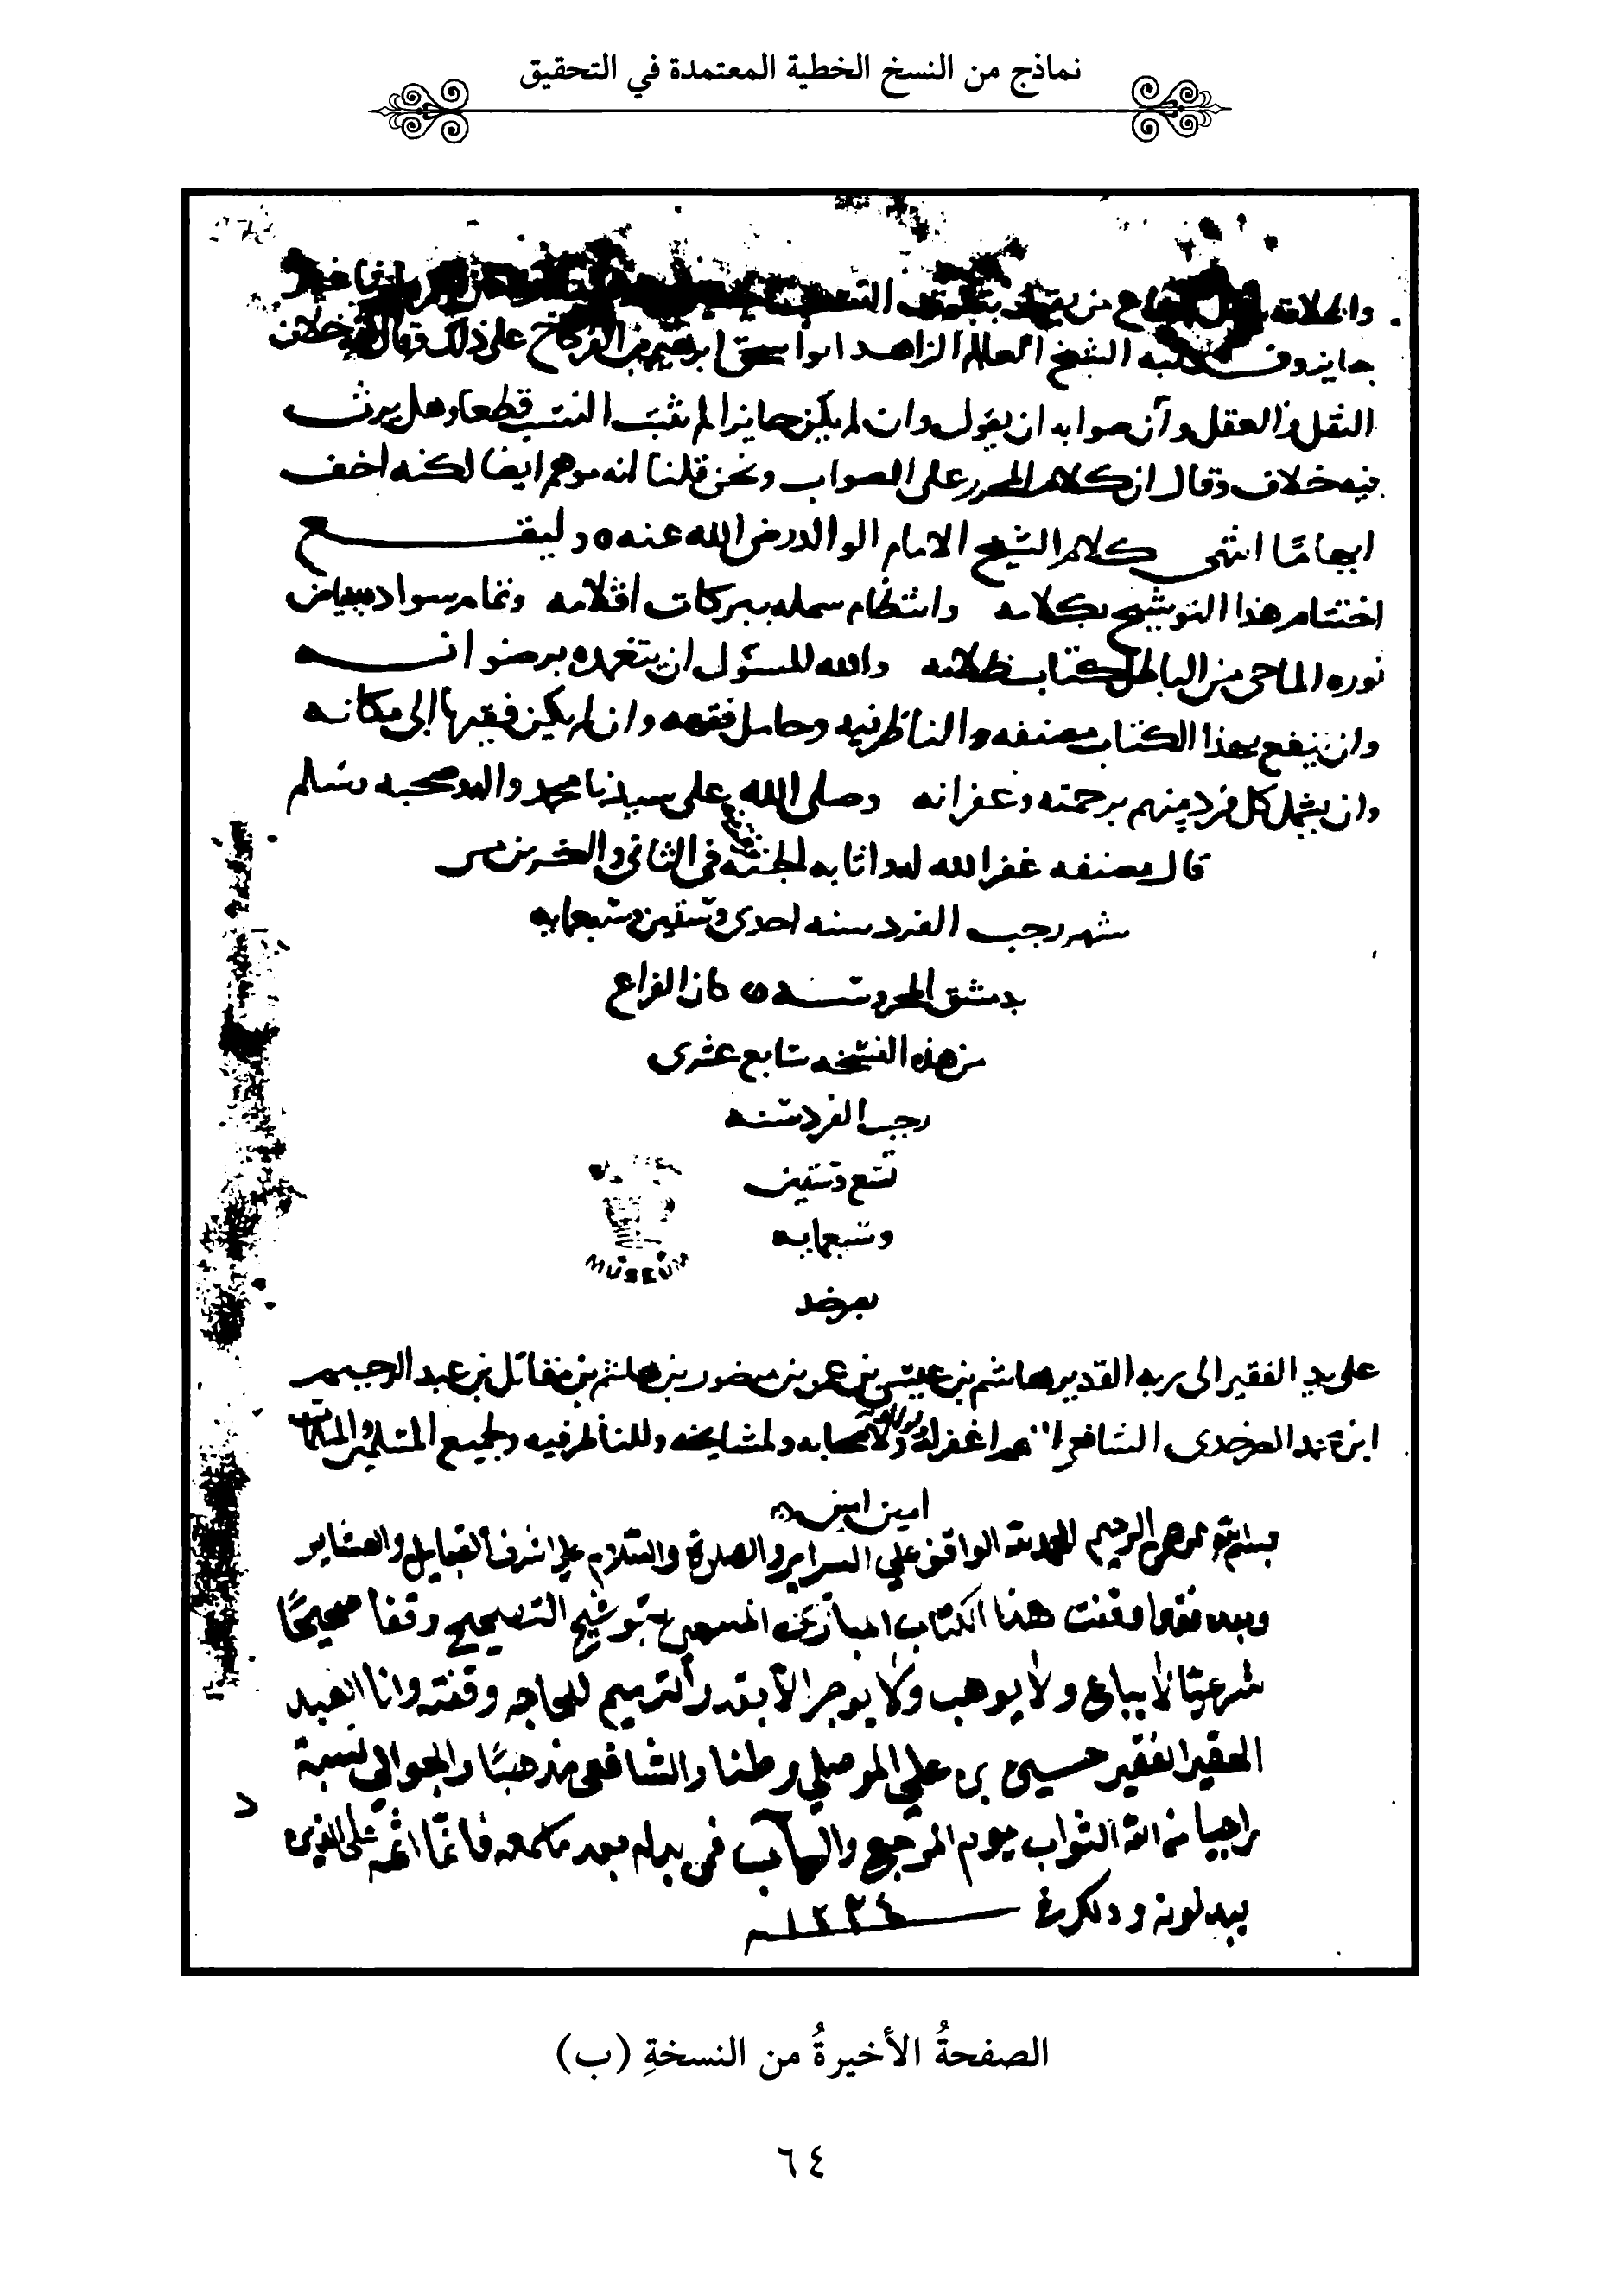 نماذج من النسخ الخطية المعتمدة في التحقيق
جايز وقد الشيخ العالم الزاهد ابو اسحق ابرهيم بن الفركاح على ذلك وقال هو خلاف
النقل والعقل وان صوابه ان يقول وان لم يكن حايزا لم يثبت النسب قطعا وهل يرث
فيه خلاف وقال ان كلام المحرر على الصواب ونحن قلنا انه موهم ايضا لكنه اخف
ايهامًا انتهى كلام الشيخ الامام الوالد رضى الله عنه وليقع
اختتام هذا التوشيح بكلامه وانتظام شمله ببركات اقلامه وتمام سواده ببياض
نوره الماحى من الباطل ظلامه والله المسئول ان يتغمده برضوانه
وان ينفع بهذا الكتاب مصنفه والناظر فيه وحامل فقهه وان لم يكن فقيها إلى مكانه
وان يشمل كل فرد منهم برحمته وغفرانه وصلى الله على سيدنا محمد واله وصحبه وسلم
قال مصنفه غفر الله له واثابه الجنة فى الثانى والعشرين من
شهر رجب الفرد سنه احدى وستين وسبعمايه
بدمشق المحروسه كان الفراغ
من هذه النسخه سابع عشرى
رجب الفرد سنه
تسع وستين
وسبعمايه
MUSEUM
على يد الفقير الى ربه القدير هاشم بن عيسى بن عمر بن منصور بن هاشم بن مقاتل بن عبد الرحيم
ابن الشافعى غفر الله له ولاصحابه ولمشايخه وللناظر فيه ولجميع المسلمين والمسلمات
امين امين
بسم الله الرحمن الرحيم الحمد لله الواقف على السراير والصلوة والسلام على اشرف القبايل والعشاير
وبعد فقد اوقفت هذا الكتاب المبارك المسمى بتوشيح التصحيح وقفا صحيحًا
شرعيًا لا يباع ولا يوهب ولا يوجر الا بقدر الترميم للحاجه وقفته وانا العبد
الحقير الفقير حسين بن علي الموصلي وطنا والشافعى مذهبًا والجوالي نسبة
راجيا من الله الثواب يوم المرجع والمآب فمن بدله بعد ما سمعه فانما اثمه على الذين
يبدلونه
الصفحةُ الأخيرةُ من النسخةِ (ب)
٦٤